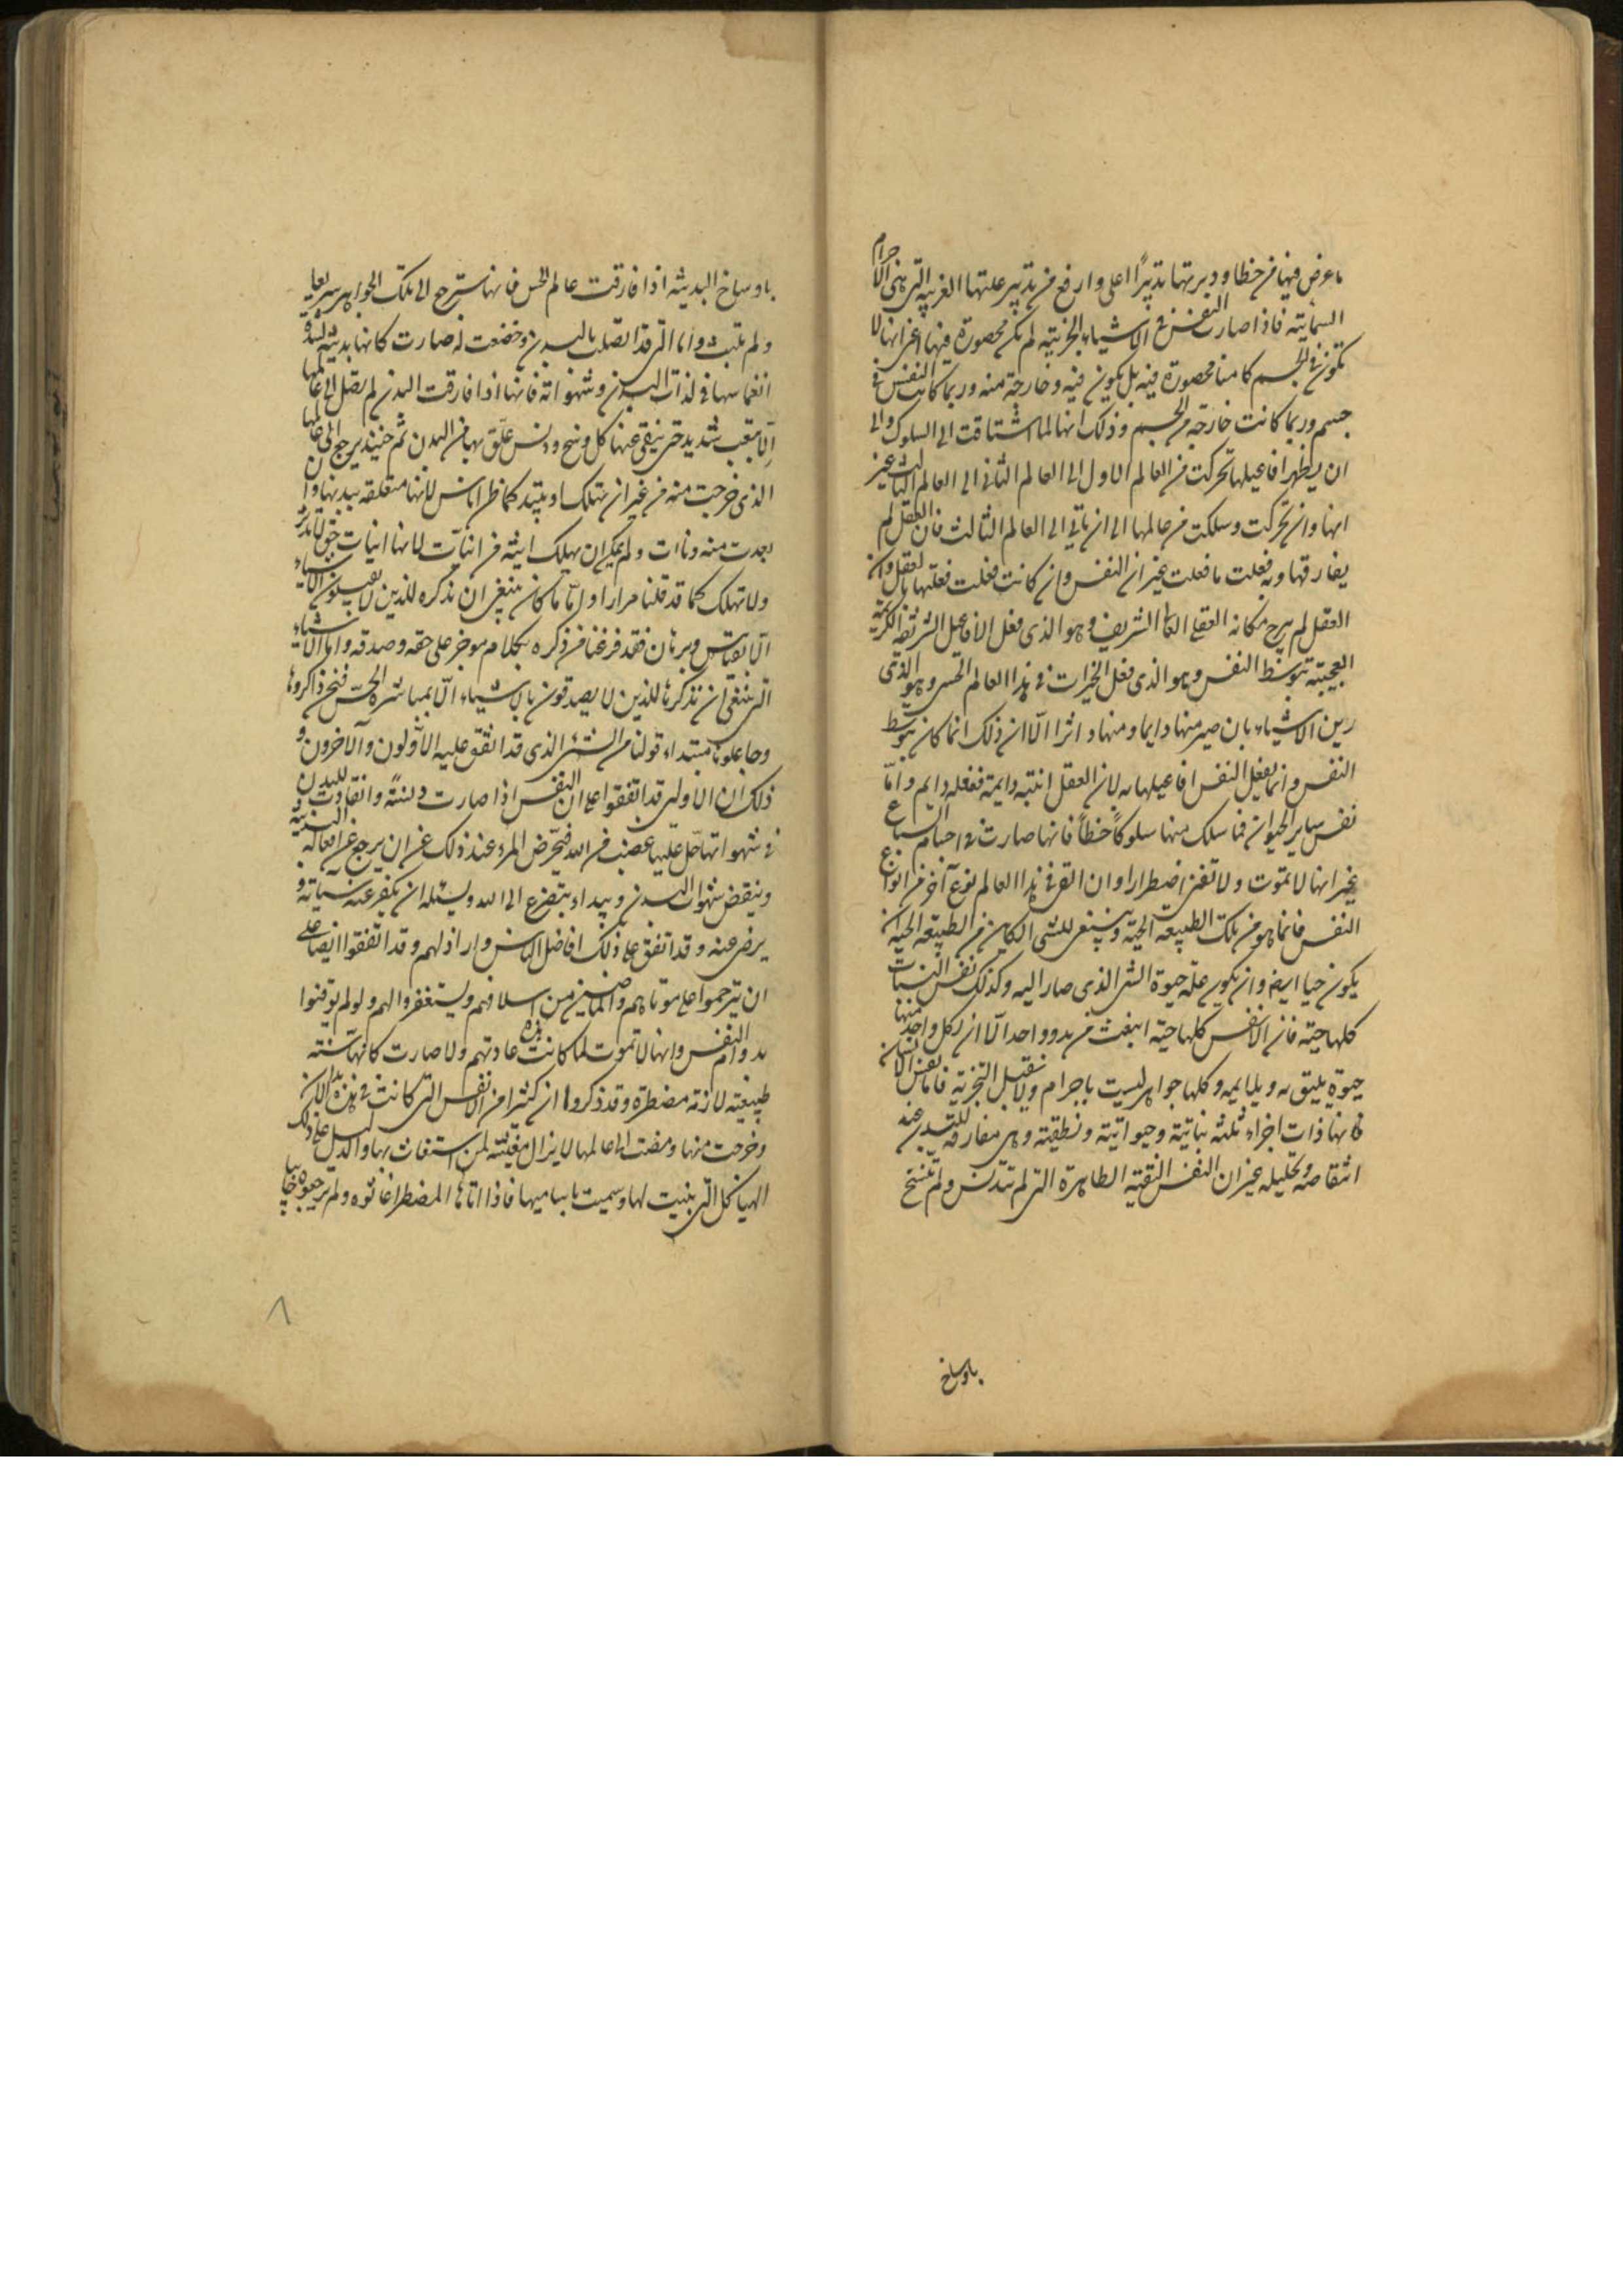 ما عرض فيها من خطا ودبرتها تدبيرًا اعلى وارفع من تدبير علتها القريبة التي هي الاجرام
السمائية فاذا صارت النفس في الاشياء الجزئية لم تكن محصورة فيها اعني انها لا
تكون في الجسم كانها محصورة فيه بل يكون فيه وخارجة منه وربما كانت النفس في
جسم وربما كانت خارجة من الجسم وذلك انها لما اشتاقت الى السلوك والى
ان يظهر افاعيلها تحركت من العالم الاول الى العالم الثاني الى العالم الثالث غير
انها وان تحركت وسلكت من عالمها الى ان ياتي الى العالم الثالث فان العقل لم
يفارقها وبه فعلت ما فعلت غير ان النفس وان كانت فعلت فعلتها بالعقل وان
العقل لم يبرح مكانه العقلي العالي الشريف وهو الذي فعل الافاعيل الشريفة الكريمة
العجيبة بتوسط النفس وهو الذي فعل الخيرات في هذا العالم الحسي وهو الذي
زين الاشياء بان صير منها دايما ومنها داثرا الّا ان ذلك انما كان بتوسط
النفس وانما يفعل النفس افاعيلها به لان العقل انية دايمة ففعله دايم وامّا
نفس ساير الحيوان فما سلك منها سلوكًا خطأً فانها صارت في اجسام السباع
غير انها لا تموت ولا تفنى اضطرارا وان القى في هذا العالم نوع آخر من انواع
النفس فانما هو من تلك الطبيعة الحية وينبغي للشي الكاين من الطبيعة الحية ان
يكون حيا ايضا وان يكون علة حيوة الشي الذي صار اليه وكذلك نفس النبات
كلها حية فان الانفس كلها حية انبعثت من بدو واحد الّا ان لكل واحد منها
حيوة يليق به ويلايمه وكلها جواهر ليست باجرام ولا تقبل التجزية فاما نفس الانسان
فانها ذات اجزاء ثلثه نباتية وحيوانية ونطقية وهي مفارقة للبدن عند
انتقاصه وتحليله غير ان النفس النقية الطاهرة التي لم تتدنس ولم تتسخ
باوساخ
باوساخ البدن اذا فارقت عالم الحس فانها سترجع الى تلك الجواهر سريعا
ولم تلبث واما التي قد اتصلت بالبدن وخضعت له صارت كانها بدنية لشدة
انغماسها في لذات البدن وشهواته فانها اذا فارقت البدن لم يصل الى عالمها
الّا بتعب شديد حتى ينقي عنها كل وسخ ودنس علق بها من البدن ثم حينئذ يرجع الى عالمها
الذي خرجت منه من غير ان تهلك او تبيد كما ظن اناس لانها متعلقة ببدنها وان
بعدت منه وناءت ولم يمكن ان يهلك انية من انيات لانها انيات حق لا تدثر
ولا تهلك كما قد قلنا مرارا واما ما كان ينبغي ان نذكره للذين لا يقبلون الاشياء
الّا بقياس وبرهان فقد فرغنا من ذكره بكلام موجز على حقه وصدقه واما الاشياء
التي ينبغي ان نذكرها للذين لا يصدقون بالاشياء الّا بمباشرة الحسّ فنحن ذاكروها
وجاعلون مبتداء قولنا من الشئ الذي قد اتفق عليه الاولون والآخرون و
ذلك ان الاولين قد اتفقوا على ان النفس اذا صارت دنسة وانقادت للبدن
في شهواتها حلّ عليها غضب من الله فيحرص المرء عند ذلك عن ان يرجع عن افعاله البدنية
ويبغض شهوات البدن ويبداء يتضرع الى الله ويسئله ان يكفر عنه سيئاته و
يرضى عنه وقد اتفق على ذلك افاضل الناس واراذلهم وقد اتفقوا ايضا على
ان يترحموا على موتاهم والماضين من اسلافهم ويستغفروا لهم ولو لم يوقنوا
بدوام النفس وانها لا تموت لما كانت هذه عادتهم ولا صارت كانها سنة
طبيعية لازمة مضطرة وقد ذكروا ان كثيرا من الانفس التي كانت في هذه الابدان
وخرجت منها ومضت الى عالمها لا يزال مغيثة لمن استغاث بها والدليل على ذلك
الهياكل التي بنيت لها وسميت باسمائها فاذا اتاها المضطر اغاثوه ولم يرجعوه خائبا
٨